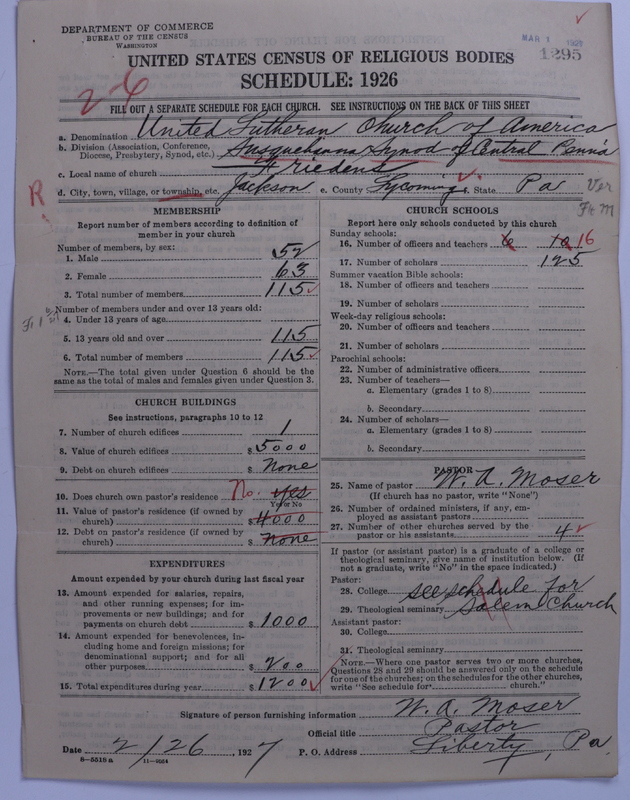 DEPARTMENT OF COMMERCE
BUREAU OF THE CENSUS
WASHINGTON
MAR 1
1295
UNITED STATES CENSUS OF RELIGIOUS BODIES
SCHEDULE: 1926
26
FILL OUT A SEPARATE SCHEDULE FOR EACH CHURCH. SEE INSTRUCTIONS ON THE BACK OF THIS SHEET
a. Denomination United Lutheran Church of America
b. Division (Association, Conference, Diocese, Presbytery, Synod, etc.) Susquehanna Synod of Central Penn'a
c. Local name of church Friedens
d. City, town, village, or township, etc. Jackson e. County Lycoming f. State Pa
R
Ver
MEMBERSHIP
Report number of members according to definition of member in your church
Number of members, by sex:
1. Male 52
2. Female 63
3. Total number of members 115
Number of members under and over 13 years old:
4. Under 13 years of age
5. 13 years old and over 115
6. Total number of members 115
NOTE.—The total given under Question 6 should be the same as the total of males and females given under Question 3.
CHURCH BUILDINGS
See instructions, paragraphs 10 to 12
7. Number of church edifices 1
8. Value of church edifices $ 5000
9. Debt on church edifices $ None
10. Does church own pastor's residence No. Yes
Yes or No
11. Value of pastor's residence (if owned by church) $ 4000
12. Debt on pastor's residence (if owned by church) $ None
EXPENDITURES
Amount expended by your church during last fiscal year
13. Amount expended for salaries, repairs, and other running expenses; for improvements or new buildings; and for payments on church debt $ 1000
14. Amount expended for benevolences, including home and foreign missions; for denominational support; and for all other purposes $ 200
15. Total expenditures during year $ 1200
CHURCH SCHOOLS
Report here only schools conducted by this church
Sunday schools:
16. Number of officers and teachers 6 10 16
17. Number of scholars 125
Summer vacation Bible schools:
18. Number of officers and teachers
19. Number of scholars
Week-day religious schools:
20. Number of officers and teachers
21. Number of scholars
Parochial schools:
22. Number of administrative officers
23. Number of teachers—
a. Elementary (grades 1 to 8)
b. Secondary
24. Number of scholars—
a. Elementary (grades 1 to 8)
b. Secondary
PASTOR
25. Name of pastor W. A. Moser
(If church has no pastor, write "None")
26. Number of ordained ministers, if any, employed as assistant pastors
27. Number of other churches served by the pastor or his assistants 4
If pastor (or assistant pastor) is a graduate of a college or theological seminary, give name of institution below. (If not a graduate, write "No" in the space indicated.)
Pastor:
28. College see schedule for
29. Theological seminary Salem Church
Assistant pastor:
30. College
31. Theological seminary
NOTE.—Where one pastor serves two or more churches, Questions 28 and 29 should be answered only on the schedule for one of the churches; on the schedules for the other churches, write "See schedule for church."
Signature of person furnishing information W. A. Moser
Official title Pastor
Date 2/26, 1927 P. O. Address Liberty, Pa
8—5515 a 11—9064